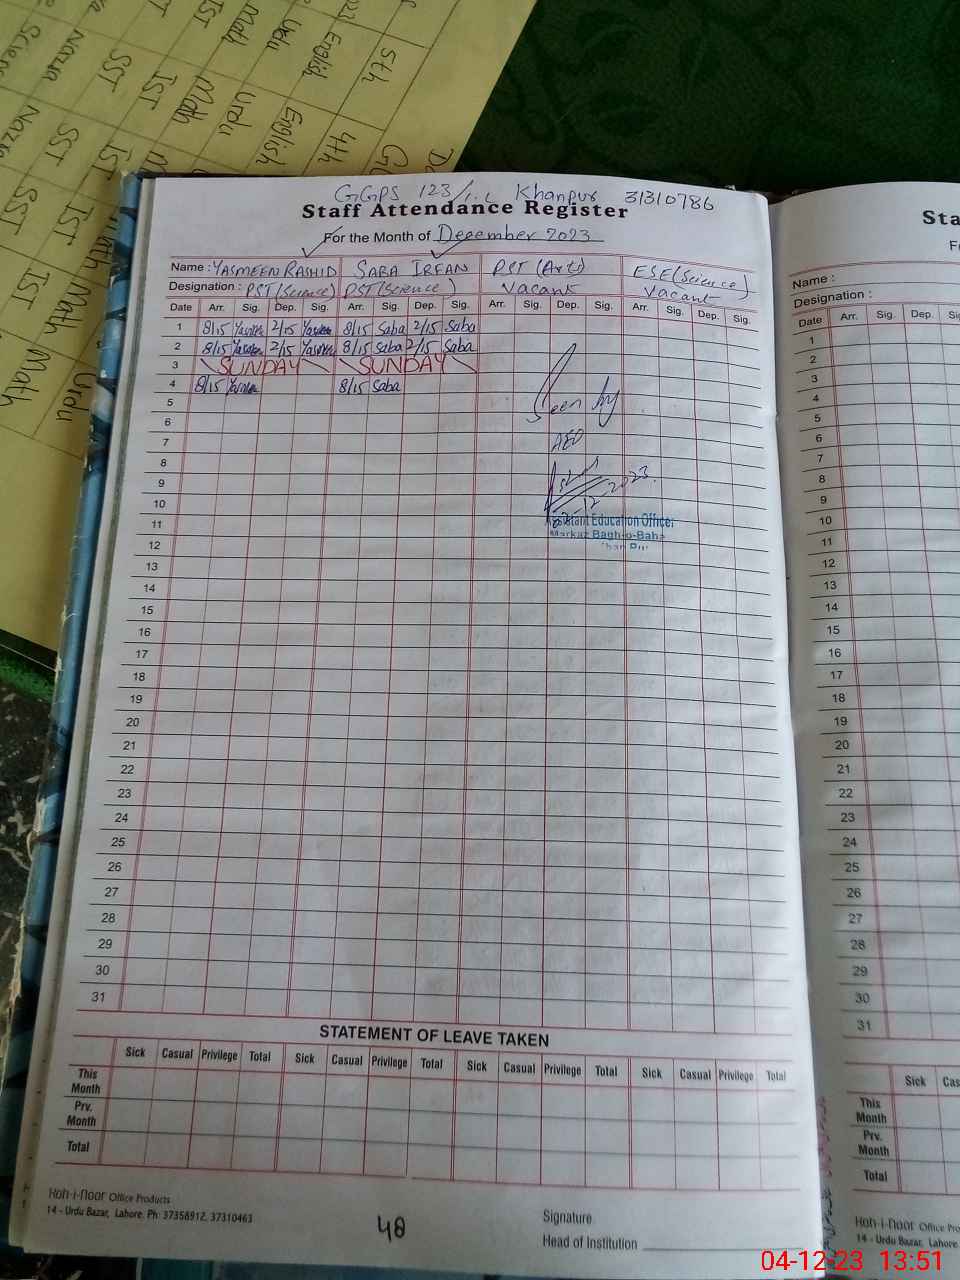 GGPS 123/1.L Khanpur 31310786
Staff Attendance Register
For the Month of December 2023
Name : YASMEEN RASHID SABA IRFAN PST (Arts) ESE (Science)
Designation : PST (Science) PST (Science) Vacant Vacant
Date Arr. Sig. Dep. Sig. Arr. Sig. Dep. Sig. Arr. Sig. Dep. Sig. Arr. Sig. Dep. Sig.
1 8/15 Yasmeen 2/15 Yasmeen 8/15 Saba 2/15 Saba
2 8/15 Yasmeen 2/15 Yasmeen 8/15 Saba 2/15 Saba
3 SUNDAY SUNDAY
4 8/15 Yasmeen 8/15 Saba
5
6
7
8
9
10
11
12
13
14
15
16
17
18
19
20
21
22
23
24
25
26
27
28
29
30
31
Seen by
AEO
12.2023.
Assistant Education Officer
Markaz Bagh-o-Baha
STATEMENT OF LEAVE TAKEN
Sick Casual Privilege Total Sick Casual Privilege Total Sick Casual Privilege Total Sick Casual Privilege Total
This Month
Prv. Month
Total
Koh-i-noor Office Products
14 - Urdu Bazar, Lahore. Ph: 37358912, 37310463
48
Signature
Head of Institution
Sta
F
Name :
Designation :
Date Arr. Sig. Dep.
1
2
3
4
5
6
7
8
9
10
11
12
13
14
15
16
17
18
19
20
21
22
23
24
25
26
27
28
29
30
31
Sick Cas
This Month
Prv. Month
Total
Koh-i-noor Office Pro
14 - Urdu Bazar, Lahore
5th
English
Urdu
Math
IST
SST
Nazra
4th
English
Urdu
Math
IST
SST
Nazra
Urdu
Math
IST
SST
04-12-23 13:51